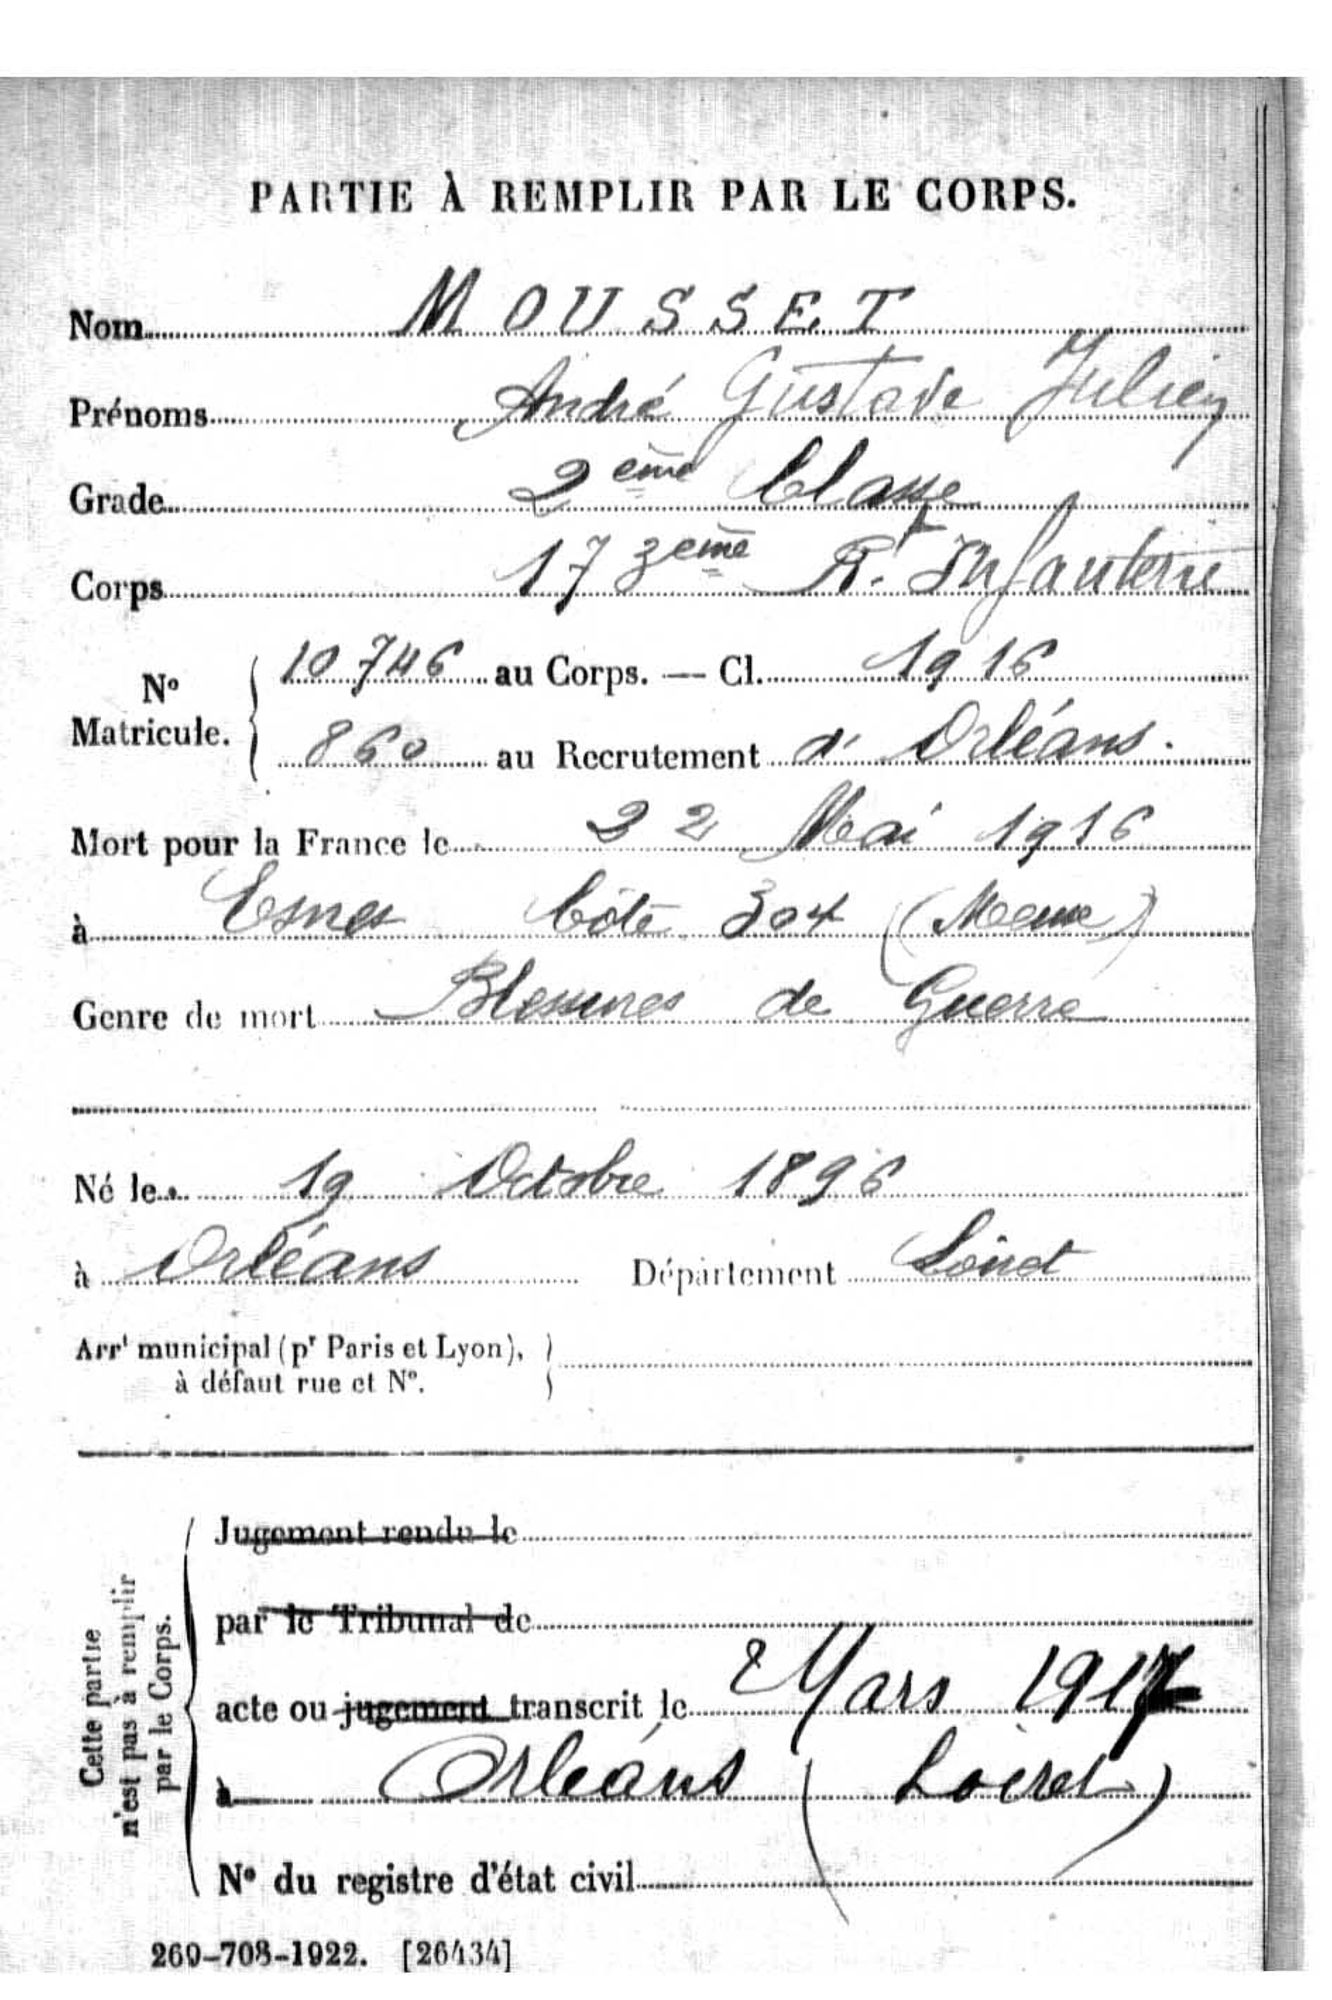 PARTIE À REMPLIR PAR LE CORPS.
Nom MOUSSET
Prénoms André Gustave Julien
Grade 2ème Classe
Corps 173ème Rt Infanterie
No Matricule. { 10746 au Corps. — Cl. 1916
860 au Recrutement d' Orléans.
Mort pour la France le 22 Mai 1916
à Esnes Côte 304 (Meuse)
Genre de mort Blessures de Guerre
Né le 19 Octobre 1896
à Orléans Département Loiret
Arrt municipal (pr Paris et Lyon), }
à défaut rue et No.
Cette partie n'est pas à remplir par le Corps. {
Jugement rendu le
par le Tribunal de
acte ou jugement transcrit le 2 Mars 1917
à Orléans (Loiret)
No du registre d'état civil
269-708-1922. [26434]